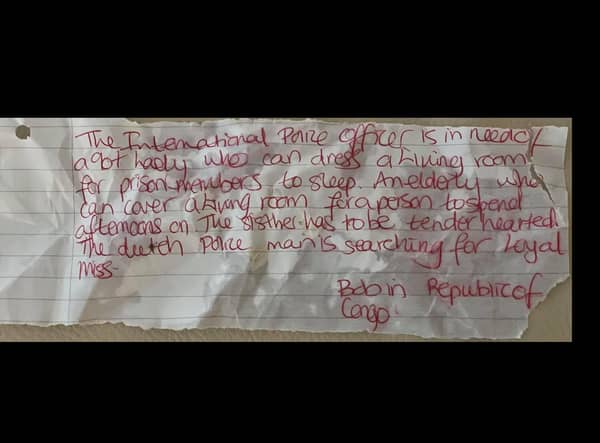 The International Police officer is in need of
a got hadly who can dress a living room
for prison members to sleep. An elderly who
can cover a living room for a person to spend
afternoons on. The sisther has to be tender hearted.
The duetch Police man is searching for loyal
miss-
Bob in Republic of
Congo